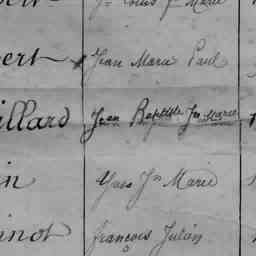 Jn Louis Jn Marie
ert Jean Marie Paul
illard Jean Baptiste Jn Marie
in Yves Jn Marie
inot françois Julien